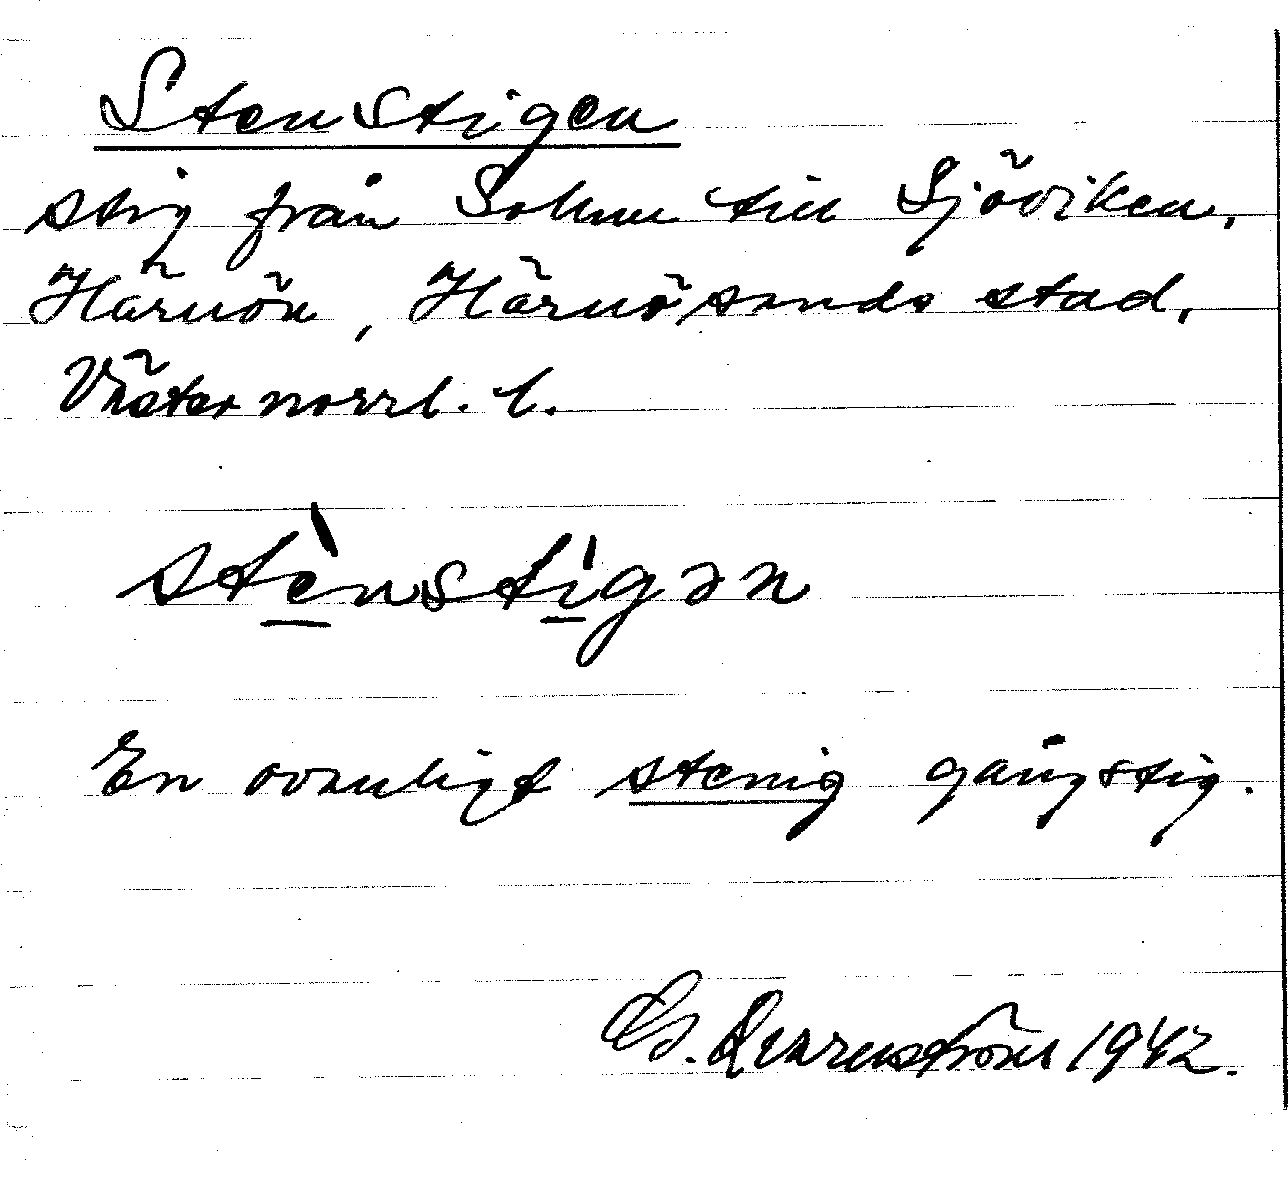 Stenstigen
stig från Solum till Sjöviken,
Härnön, Härnösands stad,
Västernorrl. l.
stènstígən
En ovanligt stenig gångstig.
G. Qvarnström 1942.